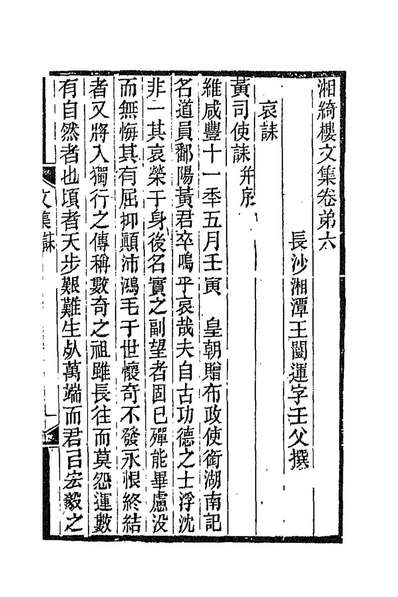 湘綺樓文集卷弟六
長沙湘潭王闓運字壬父撰
哀誄
黃司使誄并序
維咸豐十一年五月壬寅　皇朝贈布政使銜湖南記
名道員鄱陽黃君卒嗚乎哀哉夫自古功德之士浮沈
非一其哀榮于身後名實之副望者固已殫能畢慮没
而無悔其有屈抑顛沛鴻毛于世懷奇不發永恨終結
者又將入獨行之傳稱數奇之祖雖長往而莫怨運數
有自然者也頃者天步艱難生䏌萬端而君㠯宏毅之
文集誄